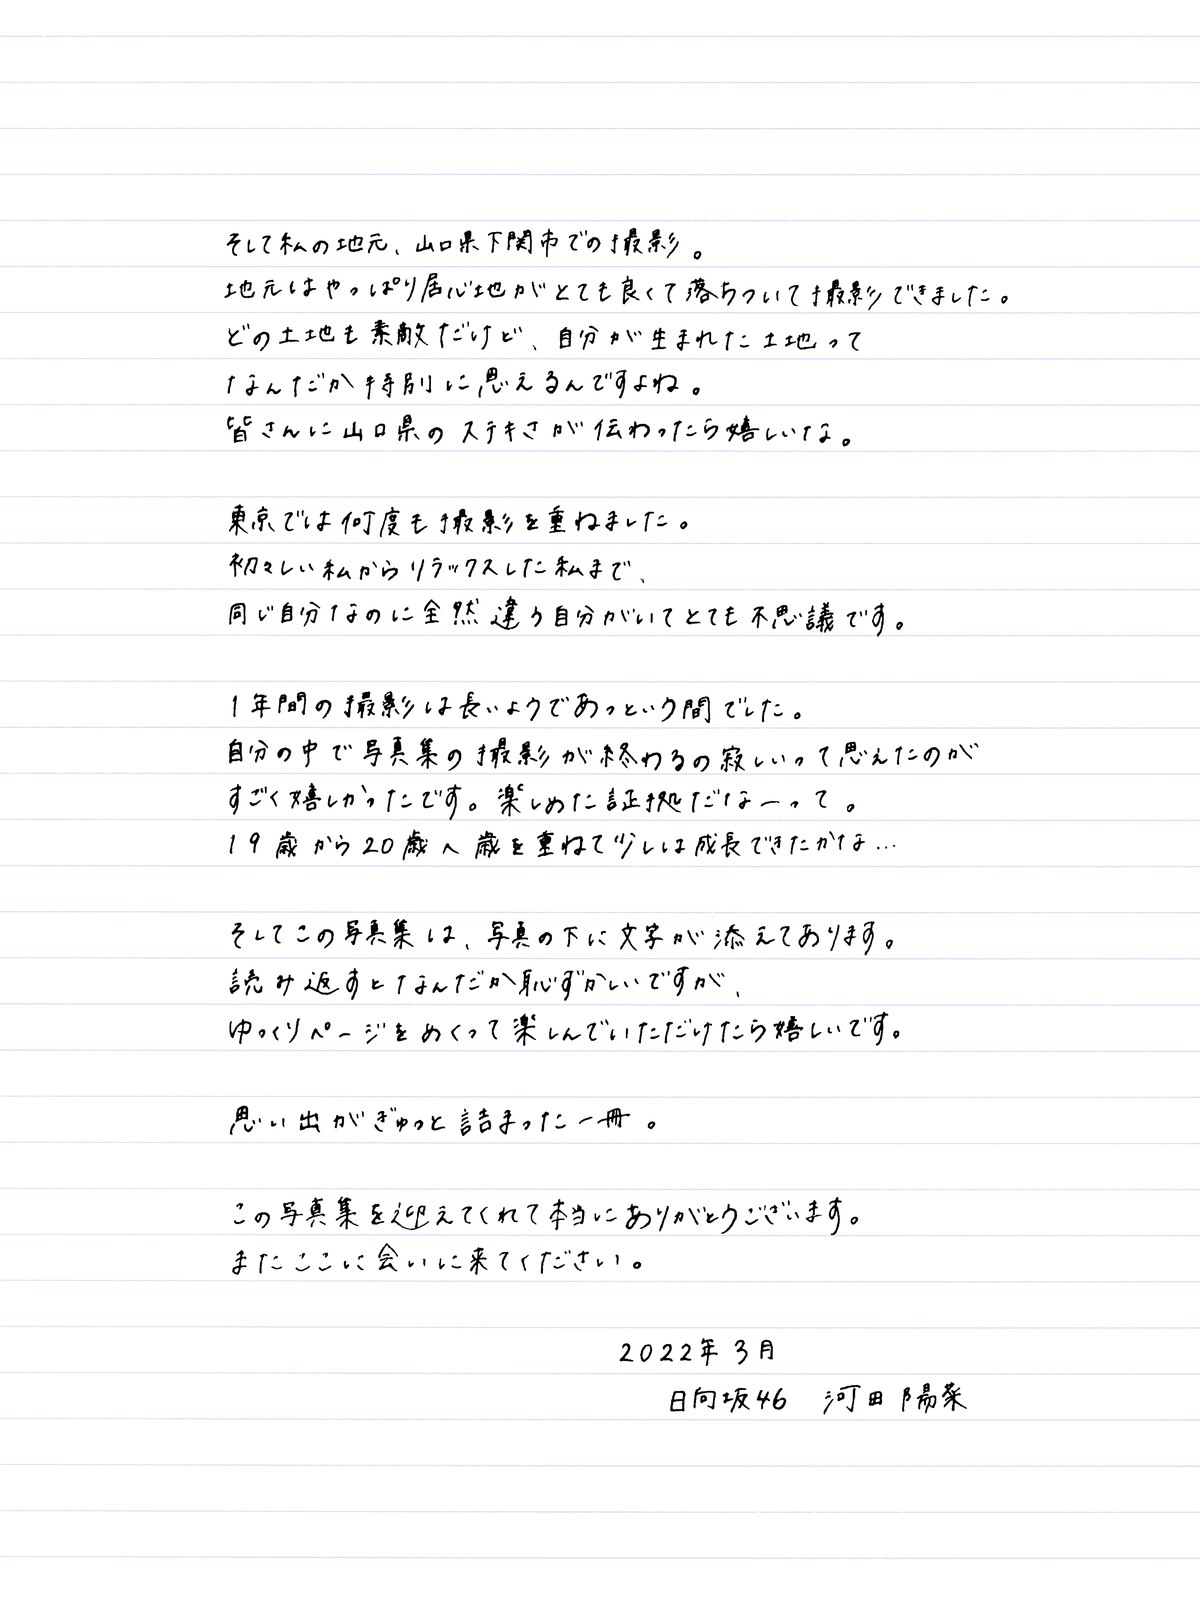 そして私の地元、山口県下関市での撮影。
地元はやっぱり居心地がとても良くて落ちついて撮影できました。
どの土地も素敵だけど、自分が生まれた土地って
なんだか特別に思えるんですよね。
皆さんに山口県のステキさが伝わったら嬉しいな。
東京では何度も撮影を重ねました。
初々しい私からリラックスした私まで、
同じ自分なのに全然違う自分がいてとても不思議です。
1年間の撮影は長いようであっという間でした。
自分の中で写真集の撮影が終わるの寂しいって思えたのが
すごく嬉しかったです。楽しめた証拠だなーって。
19歳から20歳へ歳を重ねて少しは成長できたかな…
そしてこの写真集は、写真の下に文字が添えてあります。
読み返すとなんだか恥ずかしいですが、
ゆっくりページをめくって楽しんでいただけたら嬉しいです。
思い出がぎゅっと詰まった一冊。
この写真集を迎えてくれて本当にありがとうございます。
またここに会いに来てください。
2022年3月
日向坂46 河田陽菜